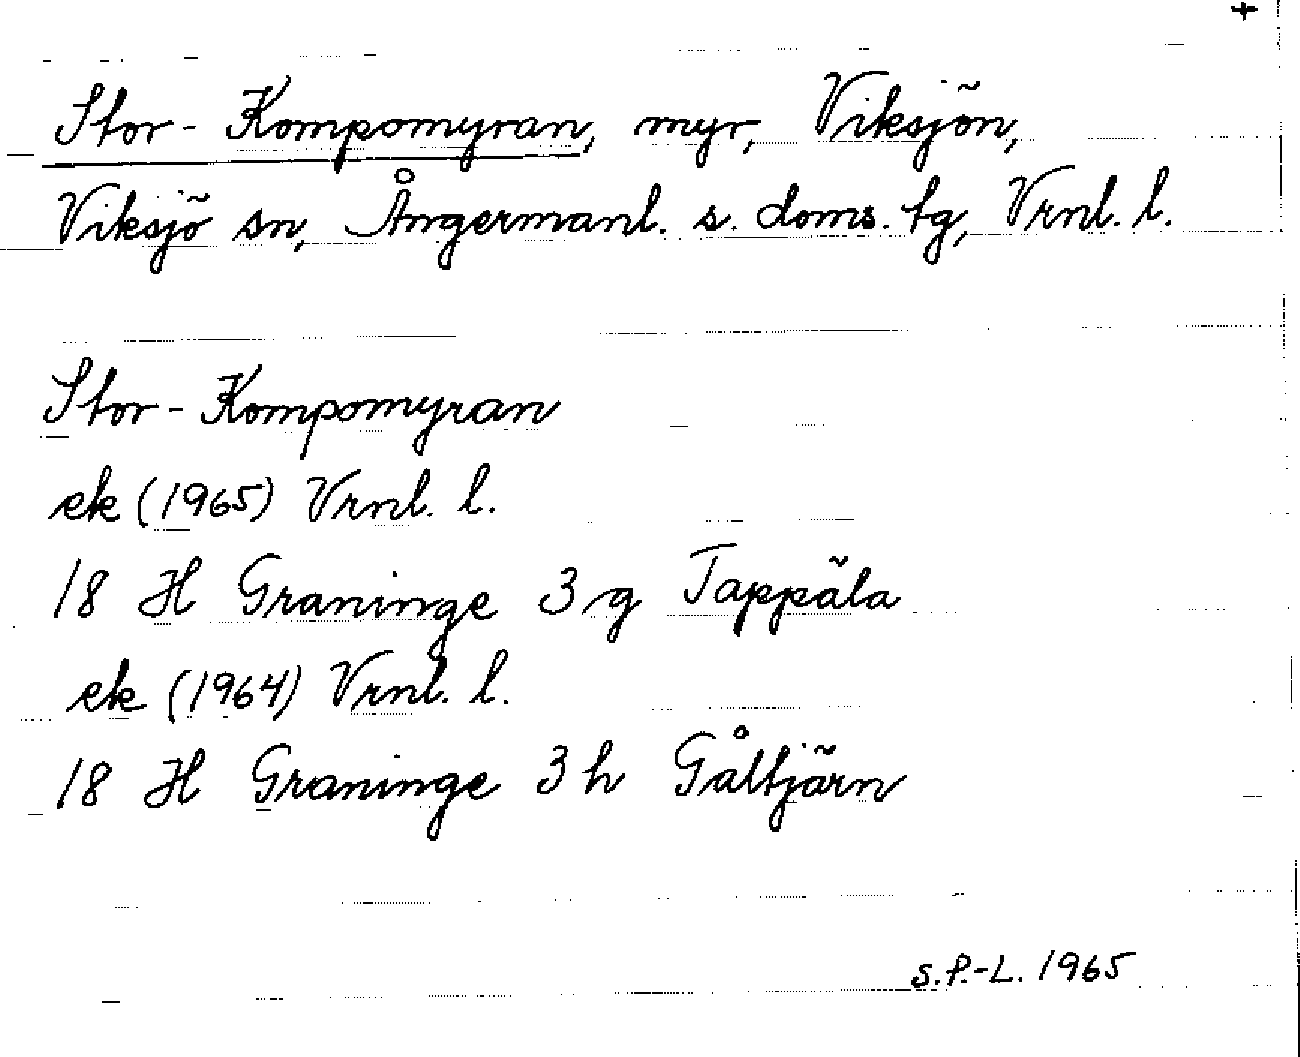 +
Stor-Kompomyran, myr, Viksjön,
Viksjö sn, Ångermanl. s. doms. tg, Vrnl. l.
Stor-Kompomyran
ek (1965) Vrnl. l.
18 H Graninge 3 g Tappäla
ek (1964) Vrnl. l.
18 H Graninge 3 h Gåltjärn
S.P.-L. 1965